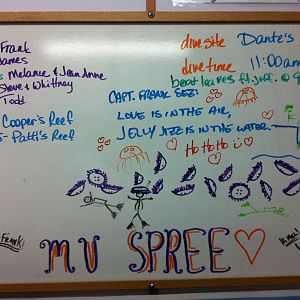 Frank
James
Melanie & Jean Anne
Steve & Whittney
Todd
Cooper's Reef
5- Patti's Reef
dive site Dante's
dive time 11:00am
boat leaves ft. Jeff. @
CAPT. FRANK SEZ:
LOVE IS IN THE AIR,
JELLY JIZZ IS IN THE WATER.
Ho Ho Ho
Frank
MV SPREE